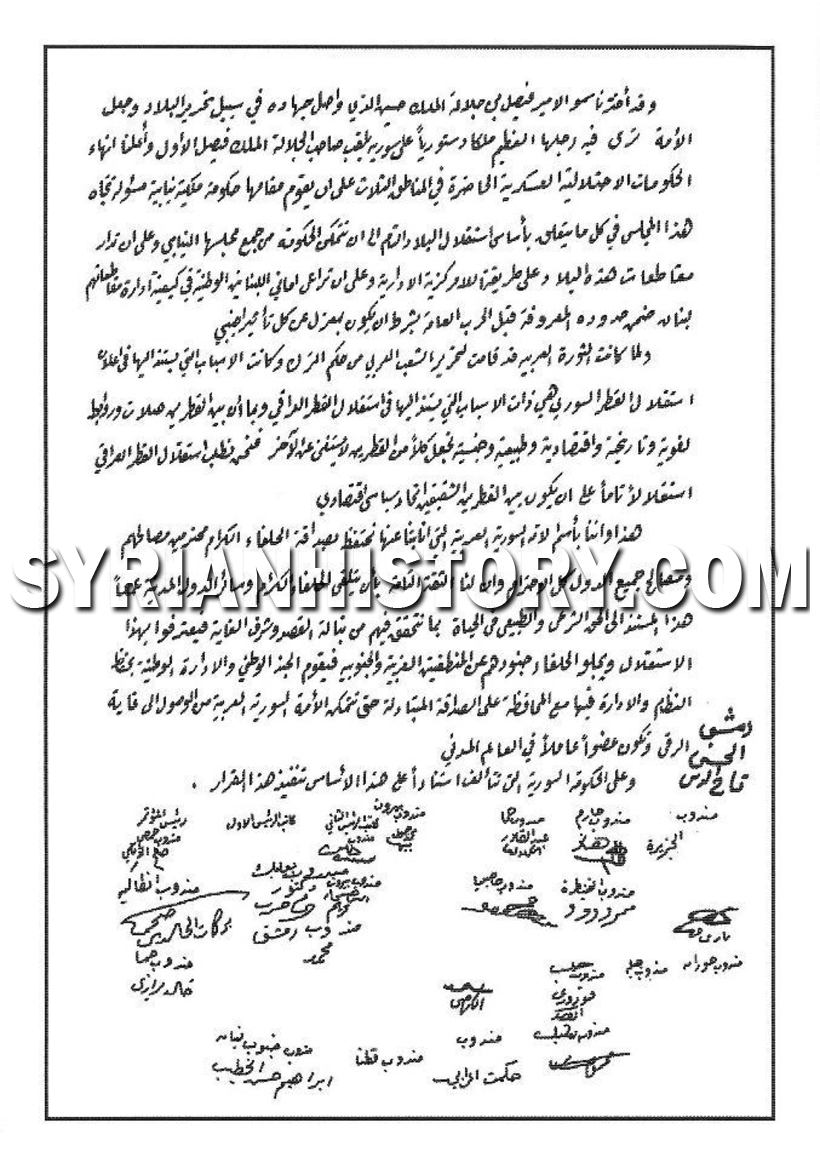 وقد أخترنا سمو الامير فيصل بن جلالة الملك حسين الذي واصل جهاده في سبيل تحرير البلاد وجعل
الأمة ترى فيه رجلها العظيم ملكا دستورياً على سورية بلقب صاحب الجلالة الملك فيصل الأول وأعلنا انهاء
الحكومات الاحتلالية العسكرية الحاضرة في المناطق الثلاث على ان يقوم مقامها حكومة ملكية نيابية مسئولة تجاه
هذا المجلس في كل ما يتعلق بأساس استقلال البلاد التام الى ان تتمكن الحكومة من جمع مجلسها النيابي وعلى ان تدار
مقاطعات هذه البلاد على طريقة اللامركزية الادارية وعلى ان تراعى اماني اللبنانيين الوطنية في كيفية ادارة مقاطعتهم
لبنان ضمن حدوده المعروفة قبل الحرب العامة بشرط ان يكون بمعزل عن كل تأثير اجنبي
ولما كانت الثورة العربية قد قامت لتحرير الشعب العربي من حكم الترك وكانت الاسباب التي يستند اليها في اعلان
استقلال القطر السوري هي ذات الاسباب التي يستند اليها في استقلال القطر العراقي وبما أن بين القطرين صلات وروابط
لغوية وتاريخية واقتصادية وطبيعية وجنسية تجعل كلاً من القطرين لا يستغنى عن الآخر فنحن نطلب استقلال القطر العراقي
استقلالاً تاماً على ان يكون بين القطرين الشقيقين اتحاد سياسي اقتصادي
هذا واننا بأسم الامة السورية العربية التي انابتنا عنها نحتفظ بصداقة الحلفاء الكرام محترمين مصالحهم
ومصالح جميع الدول كل الاحترام وان لنا الثقة التامة بأن يتلقى الحلفاء الكرام وسائر الدول المدنية عملنا
هذا المستند الى الحق الشرعي والطبيعي في الحياة بما نتحققه فيهم من نبالة القصد وشرف الغاية فيعترفوا بهذا
الاستقلال ويجلو الحلفاء جنودهم عن المنطقتين الغربية والجنوبية فيقوم الجند الوطني والادارة الوطنية بحفظ
النظام والادارة فيها مع المحافظة على الصداقة المتبادلة حتى تتمكن الأمة السورية العربية من الوصول الى غاية
الرقي وتكون عضواً عاملاً في العالم المدني
وعلى الحكومة السورية التي تتألف استناداً على هذا الأساس تنفيذ هذا القرار .
SYRIANHISTORY.COM
دمشق
مندوب الجزيرة
مندوب حارم
مندوب حما
عبد القادر
مندوب بيروت
كاتب الرئيس الثاني
كاتب الرئيس الاول
رئيس المؤتمر
مندوب حمص
مندوب بعلبك
مندوب بيروت
مندوب انطاكيه
مندوب دمشق
محمد
مندوب حوران
مندوب جبله
مندوب حلب
مندوب حما
خالد برازي
مندوب
مندوب قطنا
مندوب جنوب لبنان
حكمت الحراكي
ابراهيم الخطيب